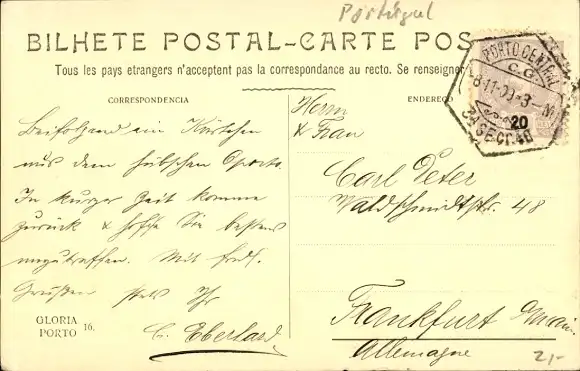 Portugal
BILHETE POSTAL-CARTE POS
Tous les pays etrangers n'acceptent pas la correspondance au recto. Se renseigner
CORRESPONDENCIA
ENDEREÇO
PORTO CENTRAL
C.G.
8-11-09-3-M
20
3ª SECT. 48
Beifolgend ein Kärtchen
aus dem hübschen Oporto.
In kurzer Zeit komme
zurück & hoffe Sie bestens
anzutreffen. Mit frdl.
Grüßen stets Ihr
C. Eberhard
Herrn
& Frau
Carl Peter
Waldschmidtstr. 48
Frankfurt a/Main
Allemagne
GLORIA
PORTO 16.
2,-